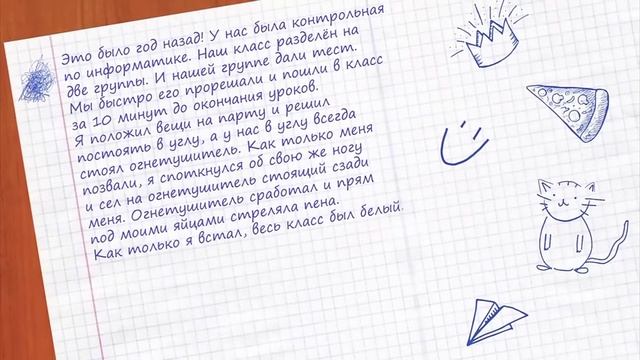 Это было год назад! У нас была контрольная
по информатике. Наш класс разделён на
две группы. И нашей группе дали тест.
Мы быстро его прорешали и пошли в класс
за 10 минут до окончания уроков.
Я положил вещи на парту и решил
постоять в углу, а у нас в углу всегда
стоял огнетушитель. Как только меня
позвали, я споткнулся об свою же ногу
и сел на огнетушитель стоящий сзади
меня. Огнетушитель сработал и прям
под моими яйцами стреляла пена.
Как только я встал, весь класс был белый.